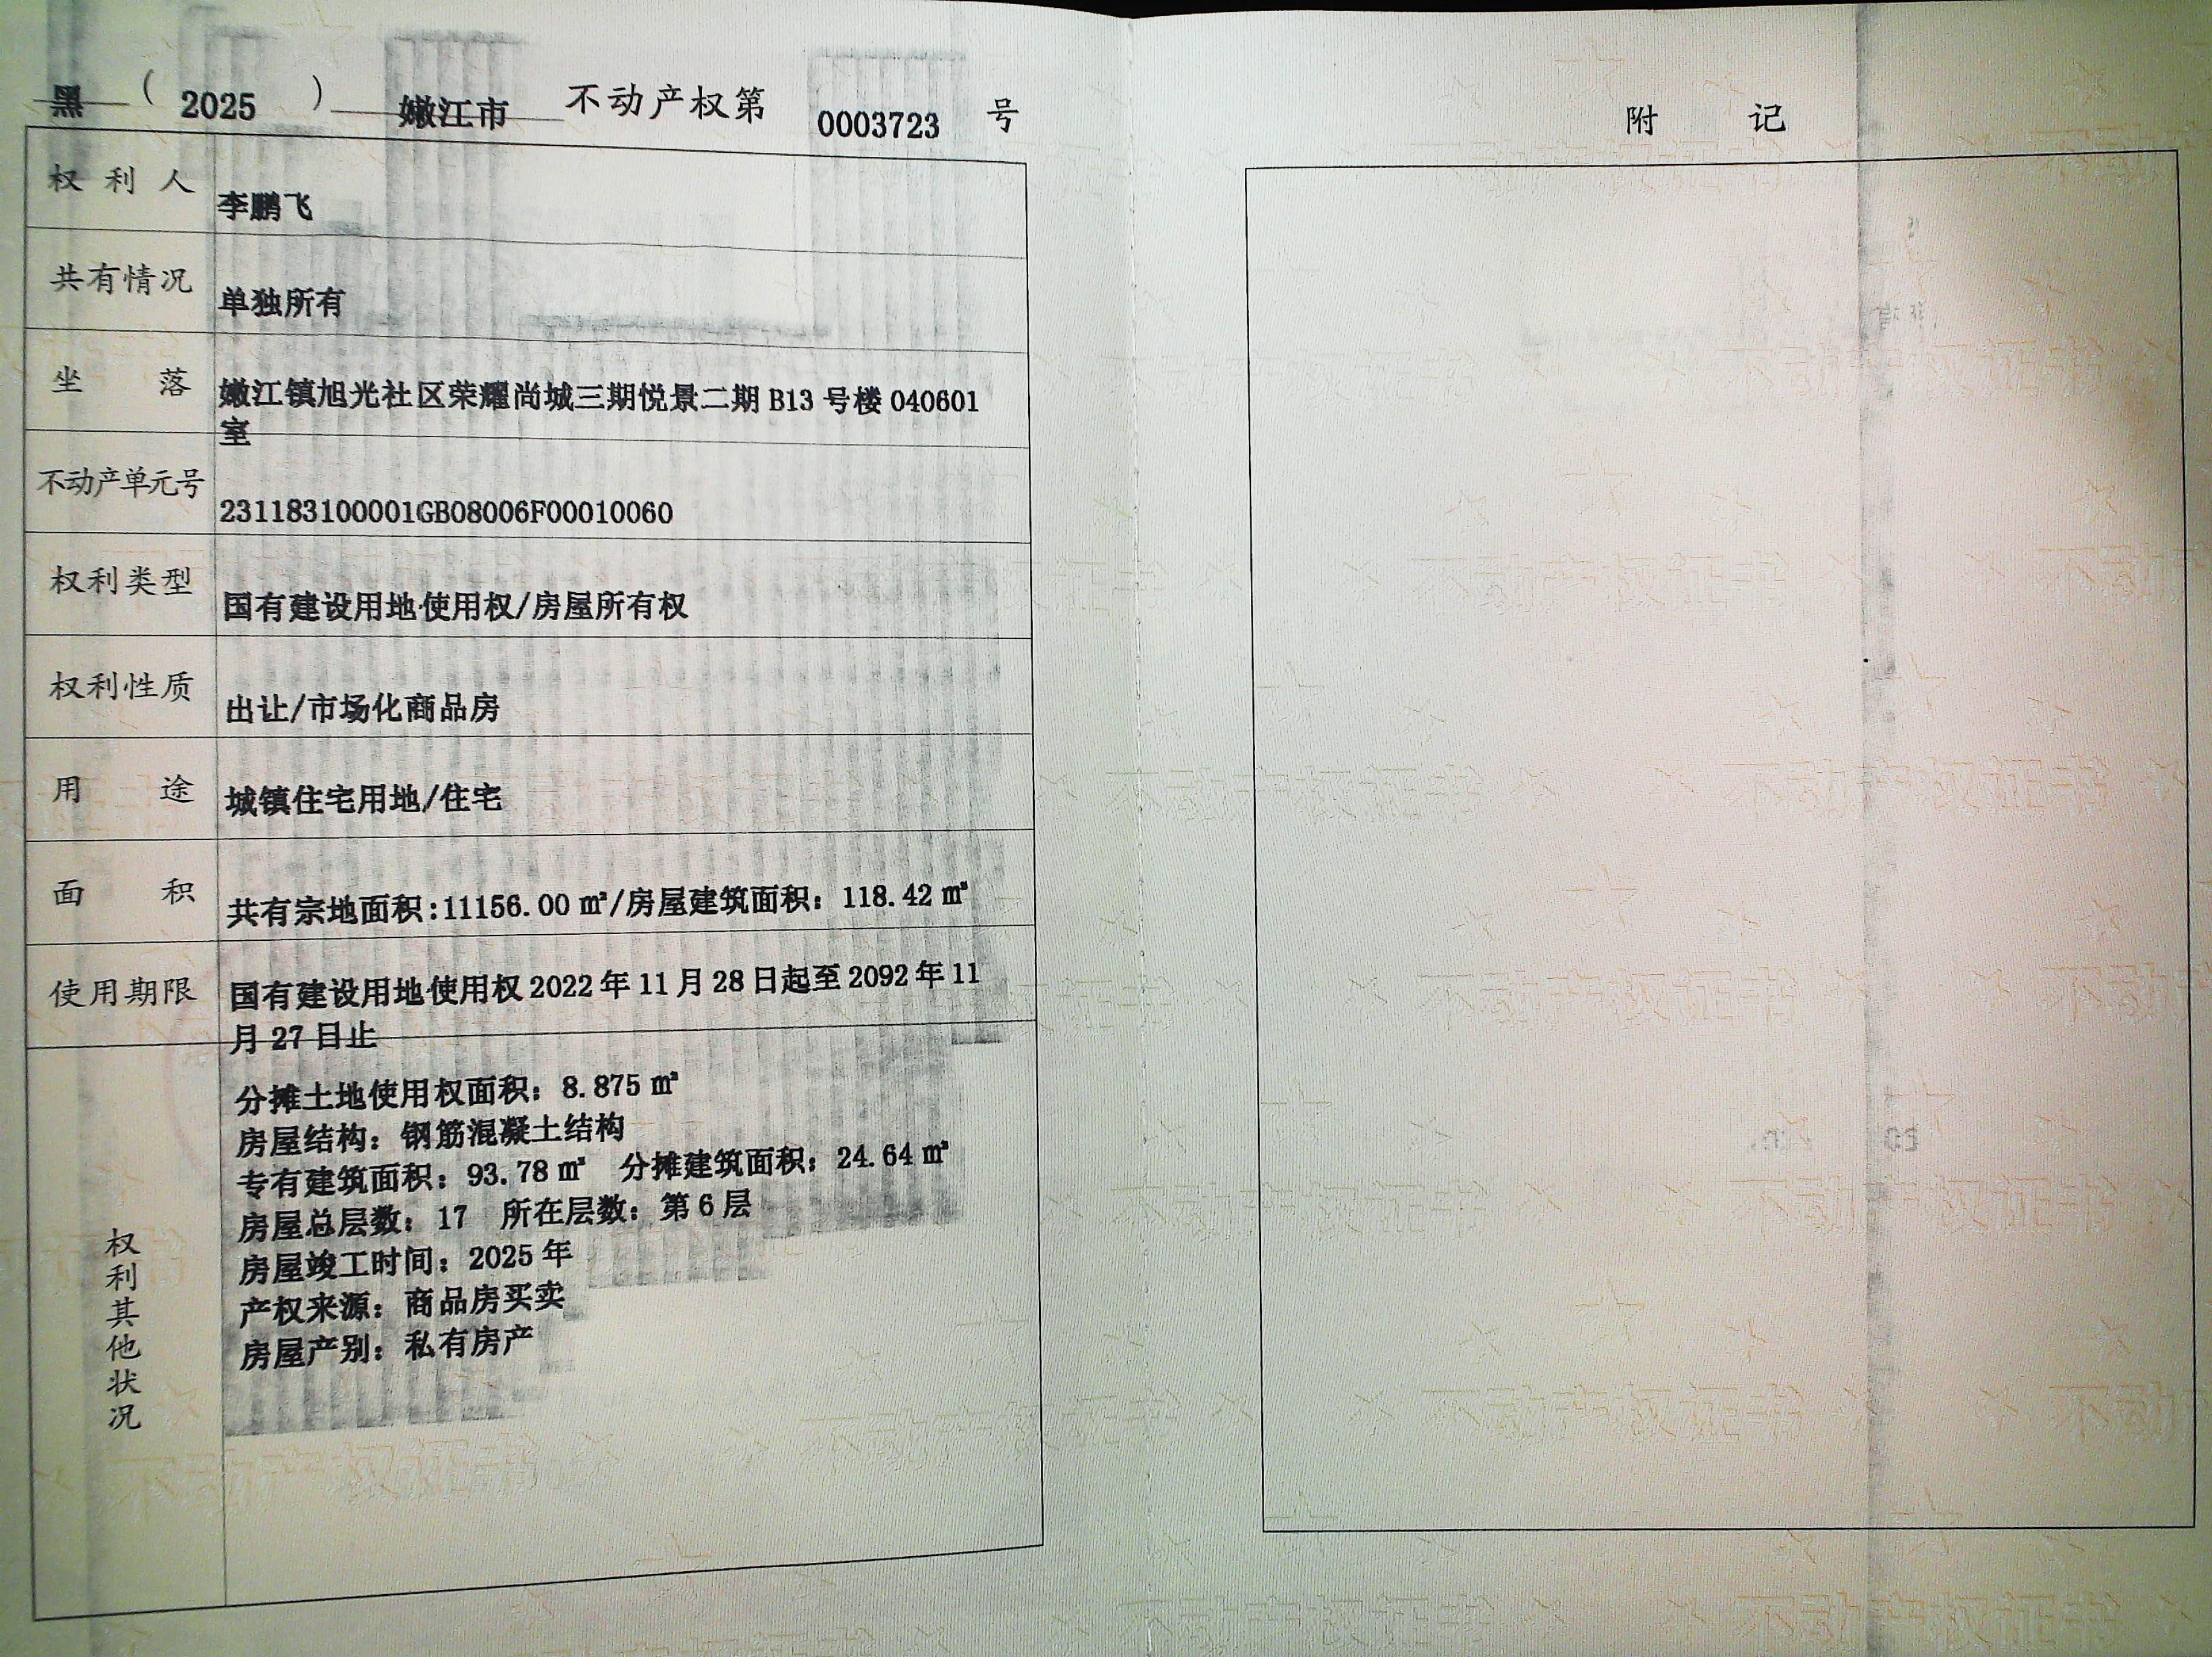 黑（2025）嫩江市不动产权第0003723号
权利人 李鹏飞
共有情况 单独所有
坐落 嫩江镇旭光社区荣耀尚城三期悦景二期 B13 号楼 040601
室
不动产单元号 231183100001GB08006F00010060
权利类型 国有建设用地使用权/房屋所有权
权利性质 出让/市场化商品房
用途 城镇住宅用地/住宅
面积 共有宗地面积:11156.00 ㎡/房屋建筑面积：118.42 ㎡
使用期限 国有建设用地使用权 2022 年 11 月 28 日起至 2092 年 11
月 27 日止
权利其他状况
分摊土地使用权面积：8.875 ㎡
房屋结构：钢筋混凝土结构
专有建筑面积：93.78 ㎡ 分摊建筑面积：24.64 ㎡
房屋总层数：17 所在层数：第 6 层
房屋竣工时间：2025 年
产权来源：商品房买卖
房屋产别：私有房产
附记
不动产权证书